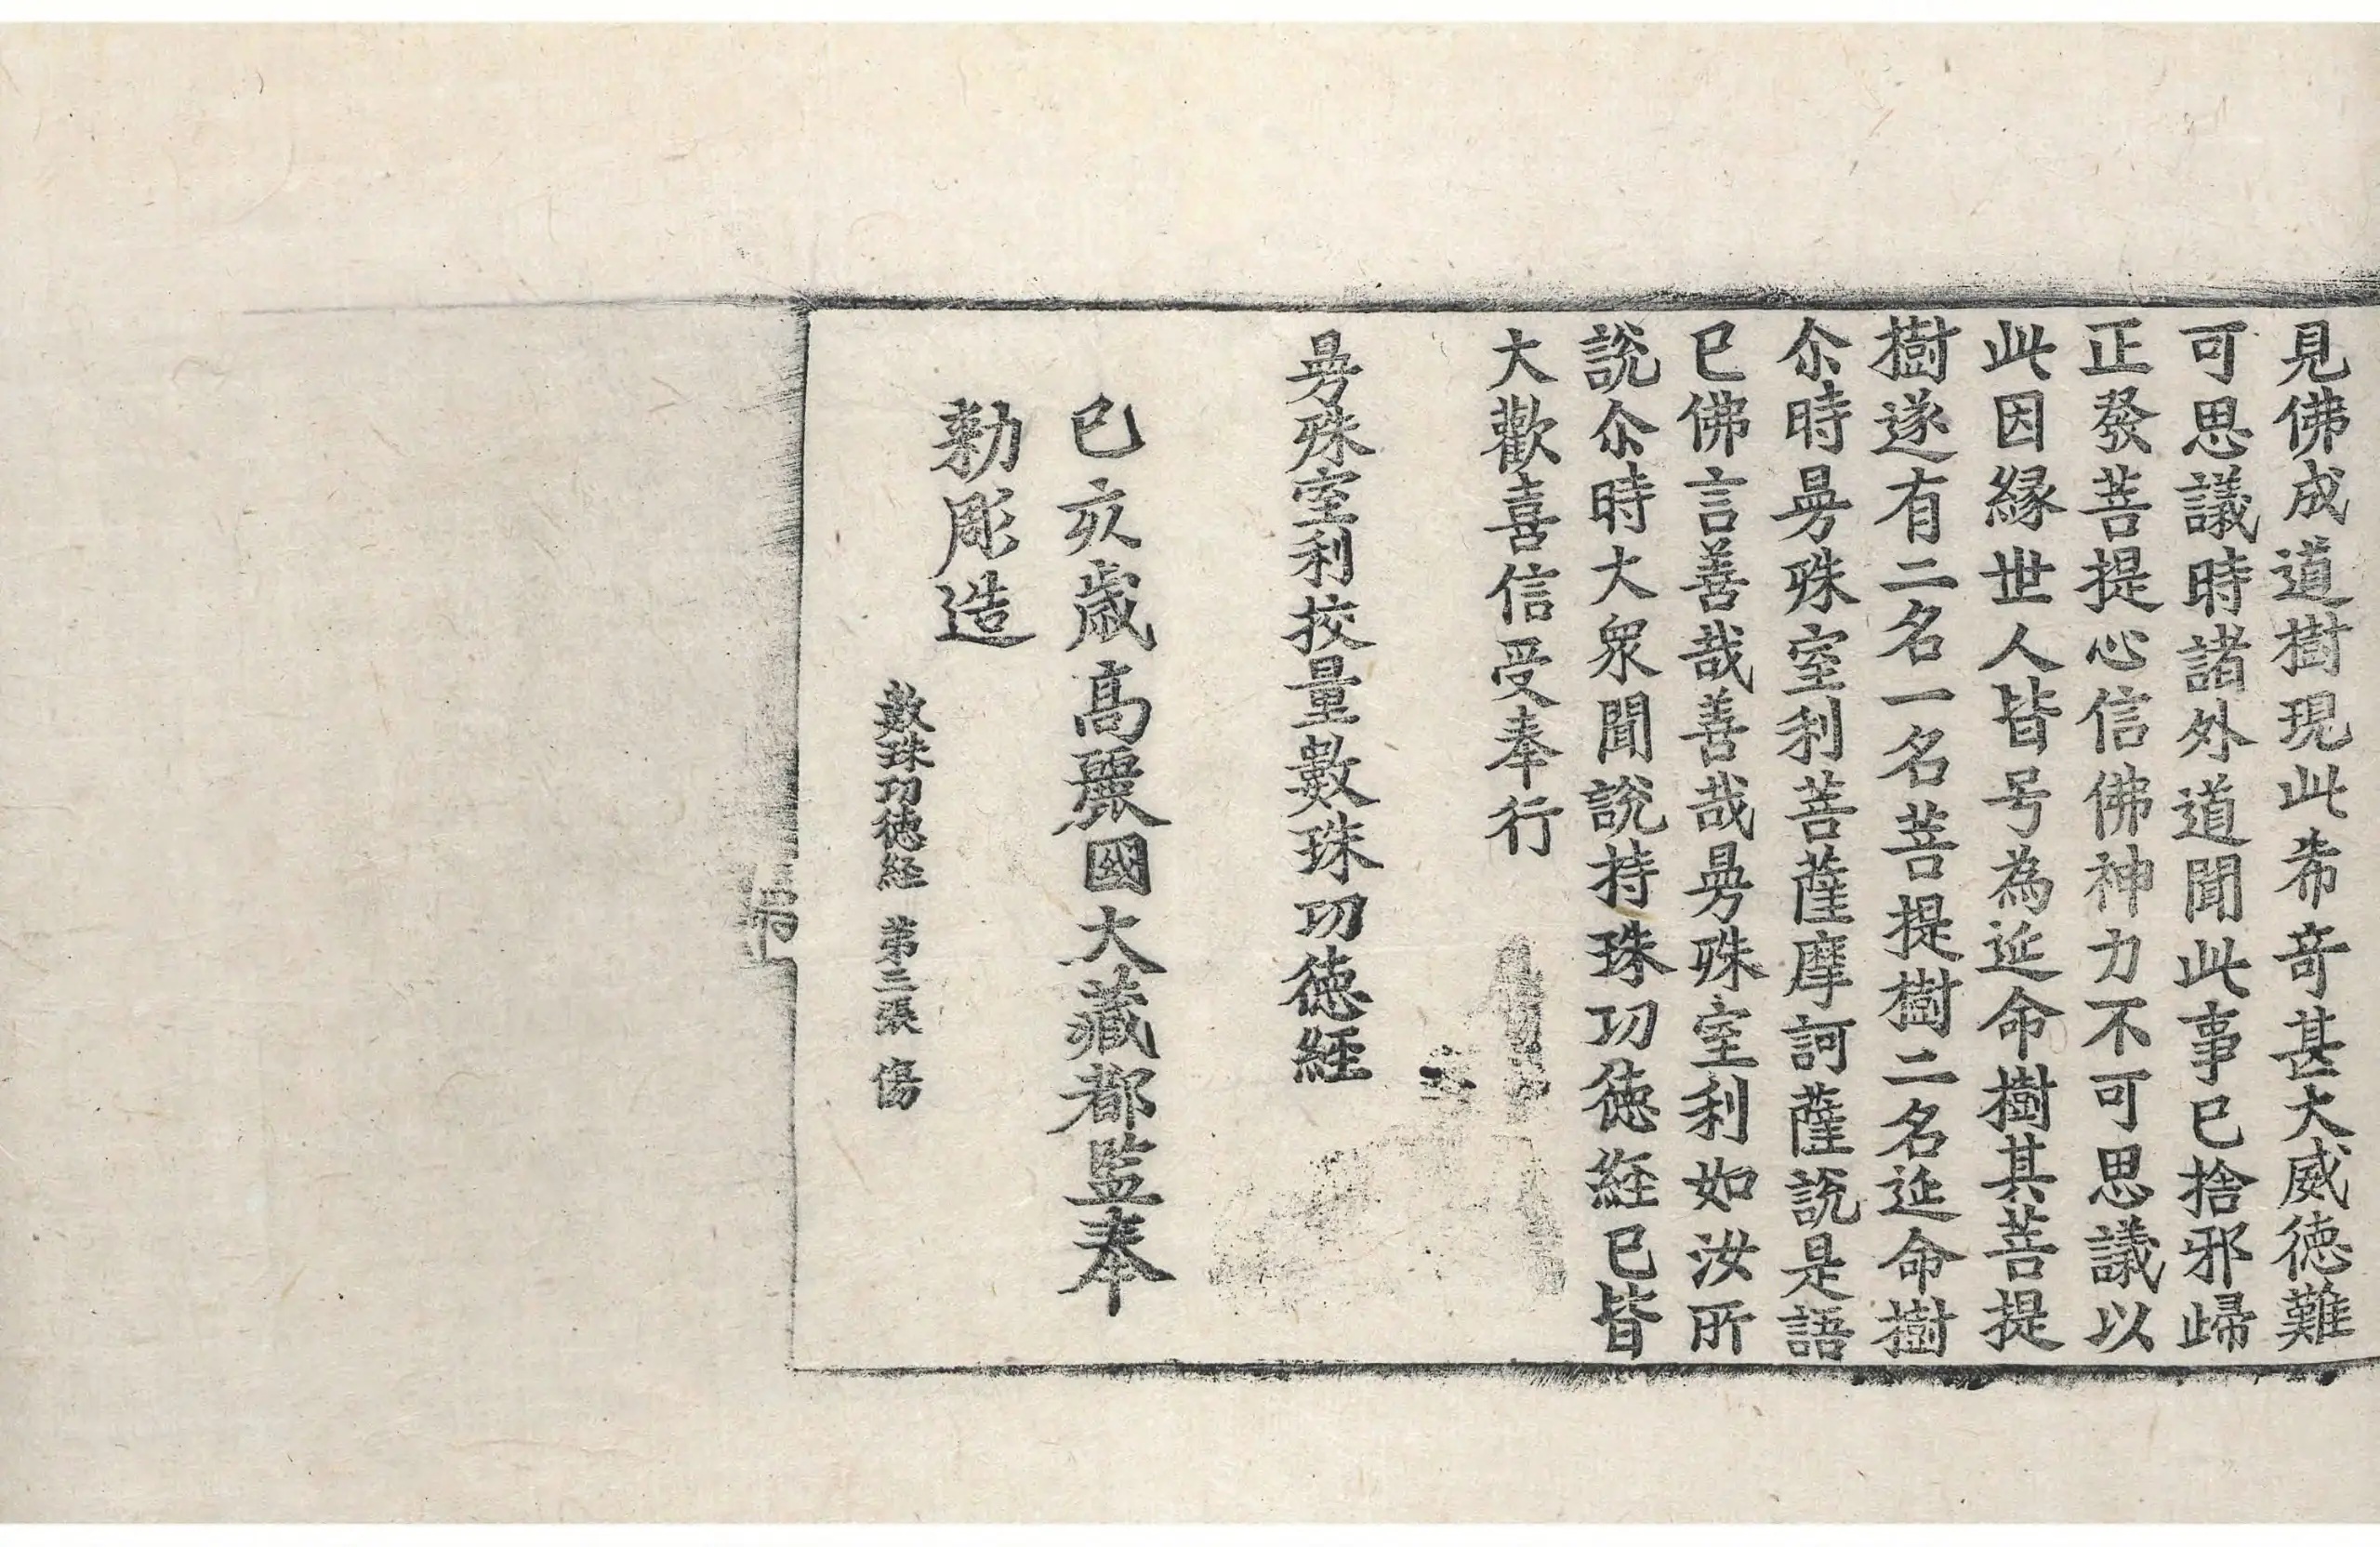 見佛成道樹現此希奇甚大威徳難
可思議時諸外道聞此事已捨邪歸
正發菩提心信佛神力不可思議以
此因縁世人皆号為延命樹其菩提
樹遂有二名一名菩提樹二名延命樹
尒時曼殊室利菩薩摩訶薩說是語
已佛言善哉善哉曼殊室利如汝所
說尒時大衆聞說持珠功徳経已皆
大歡喜信受奉行
曼殊室利挍量數珠功徳経
己亥歲高麗國大藏都監奉
勅彫造
數珠功徳経 第三張 傷